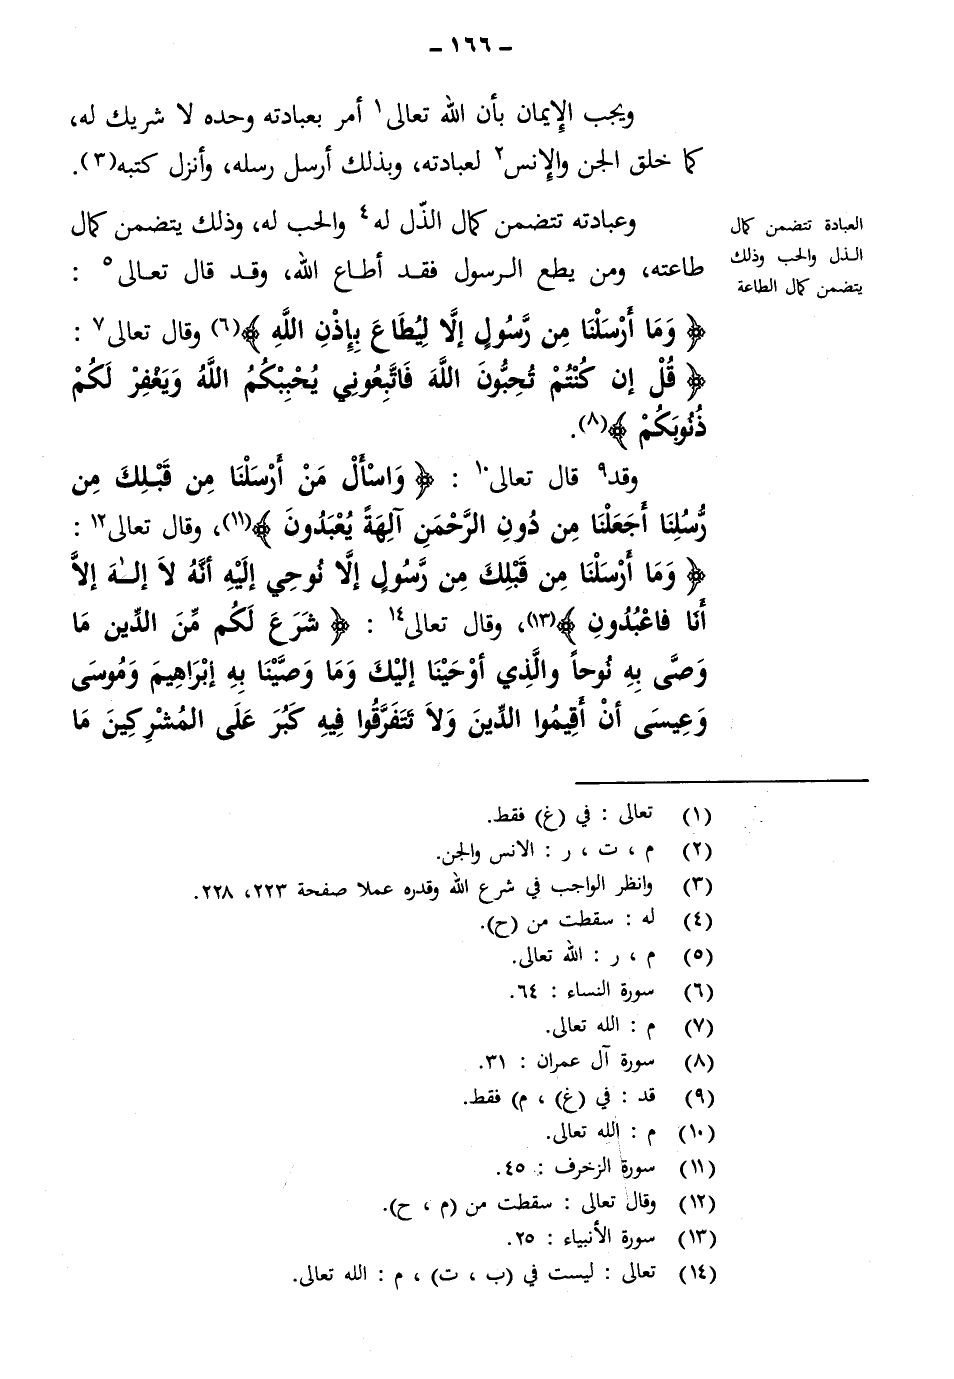 – ١٦٦ –
ويجب الإيمان بأن الله تعالى١ أمر بعبادته وحده لا شريك له،
كما خلق الجن والإنس٢ لعبادته، وبذلك أرسل رسله، وأنزل كتبه(٣).
وعبادته تتضمن كمال الذّل له٤ والحب له، وذلك يتضمن كمال
طاعته، ومن يطع الرسول فقد أطاع الله، وقد قال تعالى٥ :
﴿ وَمَا أَرْسَلْنَا مِن رَّسُولٍ إلَّا لِيُطَاعَ بِإِذْنِ اللَّهِ ﴾(٦) وقال تعالى٧ :
﴿ قُلْ إن كُنْتُمْ تُحِبُّونَ اللَّهَ فَاتَّبِعُونِي يُحْبِبْكُمُ اللَّهُ وَيَغْفِرْ لَكُمْ
ذُنُوبَكُمْ ﴾(٨).
وقد٩ قال تعالى١٠ : ﴿ وَاسْأَلْ مَنْ أَرْسَلْنَا مِن قَبْلِكَ مِن
رُّسُلِنَا أَجَعَلْنَا مِن دُونِ الرَّحْمَنِ آلِهَةً يُعْبَدُونَ ﴾(١١)، وقال تعالى١٢ :
﴿ وَمَا أَرْسَلْنَا مِن قَبْلِكَ مِن رَّسُولٍ إلَّا نُوحِي إلَيْهِ أنَّهُ لاَ إلـٰهَ إلاَّ
أَنَا فَاعْبُدُونِ ﴾(١٣)، وقال تعالى١٤ : ﴿ شَرَعَ لَكُم مِّنَ الدِّينِ مَا
وَصَّى بِهِ نُوحاً والَّذِي أوْحَيْنَا إلَيْكَ وَمَا وَصَّيْنَا بِهِ إبْرَاهِيمَ وَمُوسَى
وَعِيسَى أنْ أَقِيمُوا الدِّينَ وَلاَ تَتَفَرَّقُوا فِيهِ كَبُرَ عَلَى المُشْرِكِينَ مَا
العبادة تتضمن كمال
الـذل والحب وذلك
يتضمن كمال الطاعة
(١) تعالى : في (غ) فقط.
(٢) م ، ت ، ر : الانس والجن.
(٣) وانظر الواجب في شرع الله وقدره عملا صفحة ٢٢٣، ٢٢٨.
(٤) له : سقطت من (ح).
(٥) م ، ر : الله تعالى.
(٦) سورة النساء : ٦٤.
(٧) م : الله تعالى.
(٨) سورة آل عمران : ٣١.
(٩) قد : في (غ) ، م) فقط.
(١٠) م : الله تعالى.
(١١) سورة الزخرف : ٤٥.
(١٢) وقال تعالى : سقطت من (م ، ح).
(١٣) سورة الأنبياء : ٢٥.
(١٤) تعالى : ليست في (ب ، ت) ، م : الله تعالى.